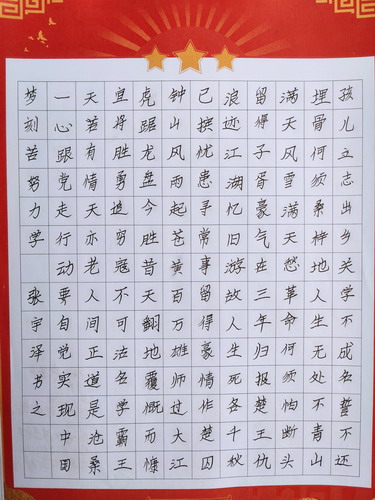 孩儿立志出乡关学不成名誓不还
埋骨何须桑梓地人生无处不青山
满天风雪满天愁革命何须怕断头
留得子胥豪气在三年归报楚王仇
浪迹江湖忆旧游故人生死各千秋
已摈忧患寻常事留得豪情作楚囚
钟山风雨起苍黄百万雄师过大江
虎踞龙盘今胜昔天翻地覆慨而慷
宜将胜勇追穷寇不可沽名学霸王
天若有情天亦老人间正道是沧桑
一心跟党走行动要自觉实现中国
梦刻苦努力学 张宇泽书之